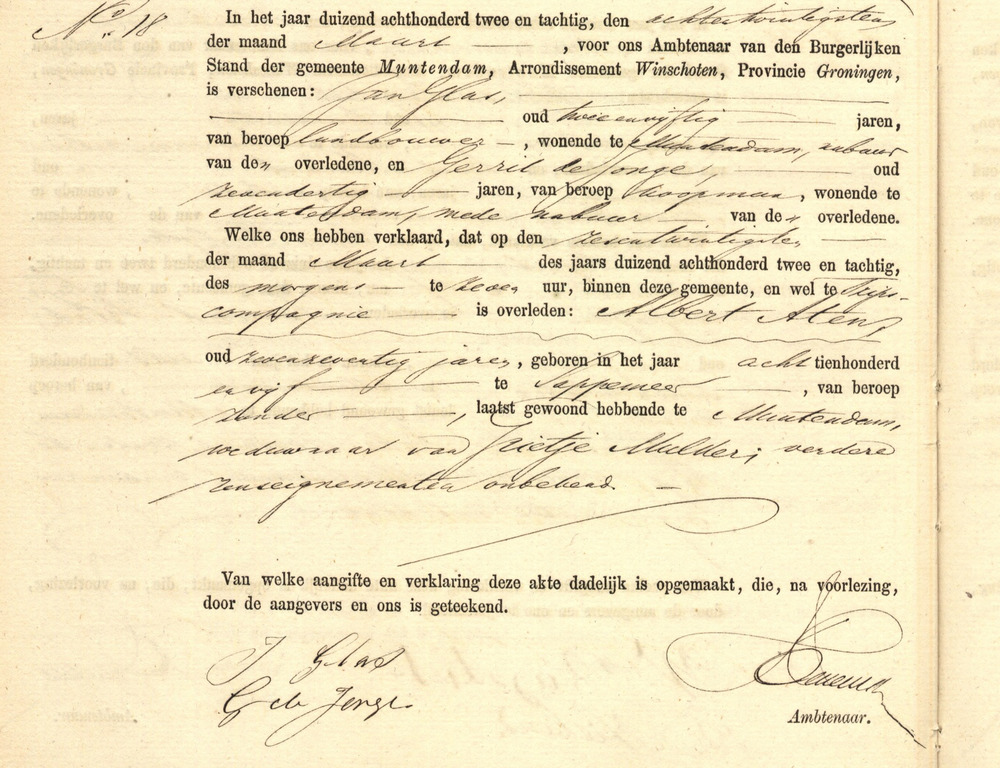 No. 18
In het jaar duizend achthonderd twee en tachtig, den achtentwintigsten
der maand Maart, voor ons Ambtenaar van den Burgerlijken
Stand der gemeente Muntendam, Arrondissement Winschoten, Provincie Groningen,
is verschenen: Jan Glas,
oud tweeenvijftig jaren,
van beroep landbouwer, wonende te Muntendam, nabuur
van de" overledene, en Gerrit de Jonge oud
zevendertig jaren, van beroep koopman, wonende te
Muntendam, mede nabuur van de" overledene.
Welke ons hebben verklaard, dat op den zesentwintigsten
der maand Maart des jaars duizend achthonderd twee en tachtig,
des morgens te zeven uur, binnen deze gemeente, en wel te
compagnie is overleden: Albert Atens,
oud zevenzeventig jaren, geboren in het jaar achttienhonderd
en vijf te Sappemeer, van beroep
zonder, laatst gewoond hebbende te Muntendam,
weduwnaar van Grietje Mulder; verdere
renseignementen onbekend.
Van welke aangifte en verklaring deze akte dadelijk is opgemaakt, die, na voorlezing,
door de aangevers en ons is geteekend.
J Glas
G de Jonge
Ambtenaar.